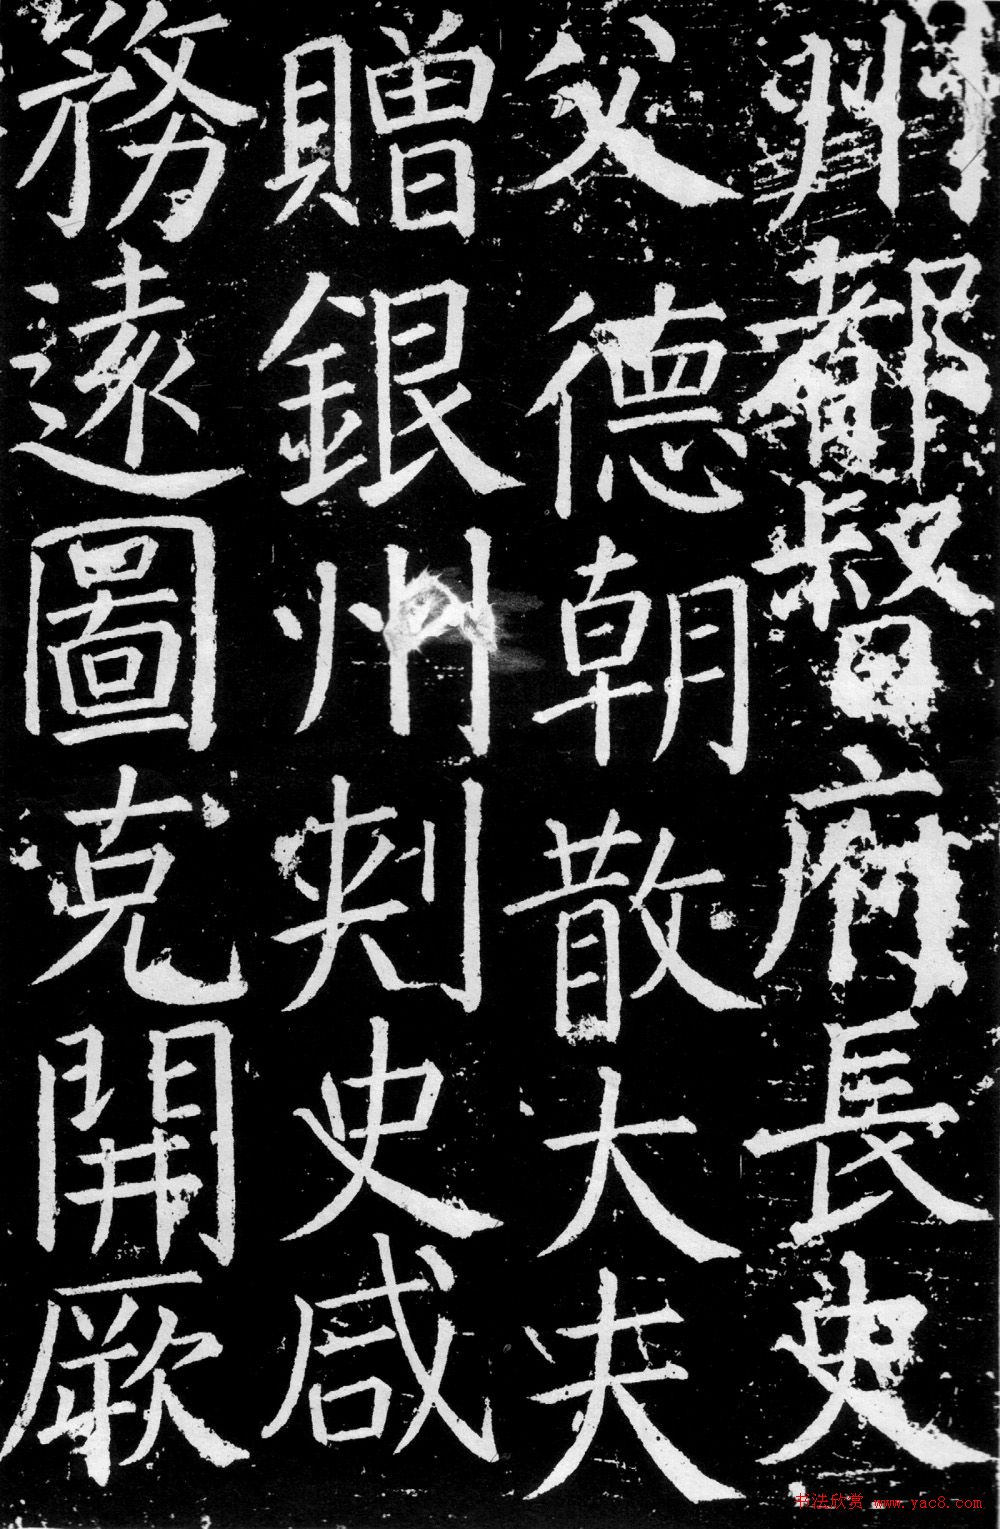 州都督府長史
父德朝散大夫
贈銀州刺史咸
務遠圖克開厥
书法欣赏 www.yac8.com